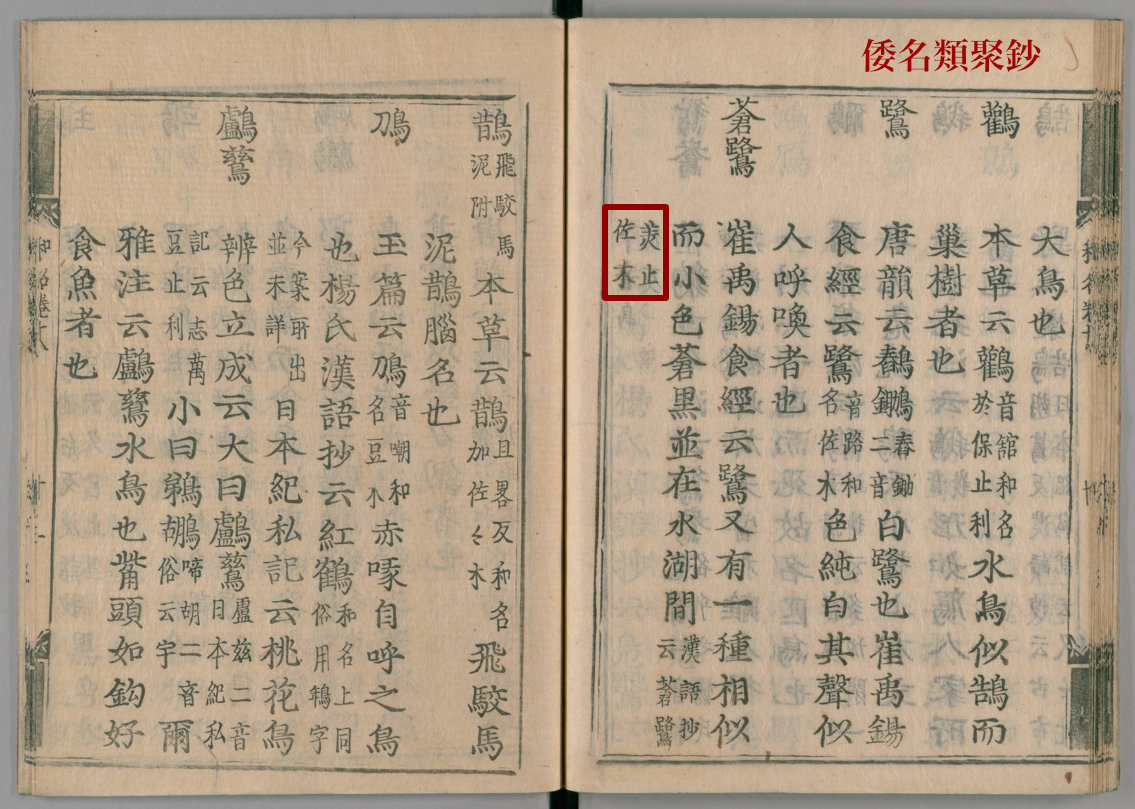 倭名類聚鈔
大鳥也
鸛 本草云鸛音舘和名於保止利水鳥似鵠而
巢樹者也
鷺 唐韻云春鋤二音白鷺也崔禹錫
食經云鷺音路和名佐木色純白其聲似
人呼喚者也
蒼鷺 崔禹錫食經云鷺又有一種相似
而小色蒼黑並在水湖間漢語抄云蒼鷺
美止佐木
鵲飛駮馬泥附 本草云鵲且畧反和名加佐〻木飛駮馬
泥鵲腦名也
鳭 玉篇云鳭音嘲和名豆木赤喙自呼之鳥
也楊氏漢語抄云紅鶴和名上同俗用鴾字
今案所出並未詳日本紀私記云桃花鳥
鸕鷀 辨色立成云大曰鸕鷀盧兹二音日本紀私
記云志萬豆止利小曰鵜鶘啼胡二音俗云宇爾
雅注云鸕鷀水鳥也觜頭如鈎好
食魚者也